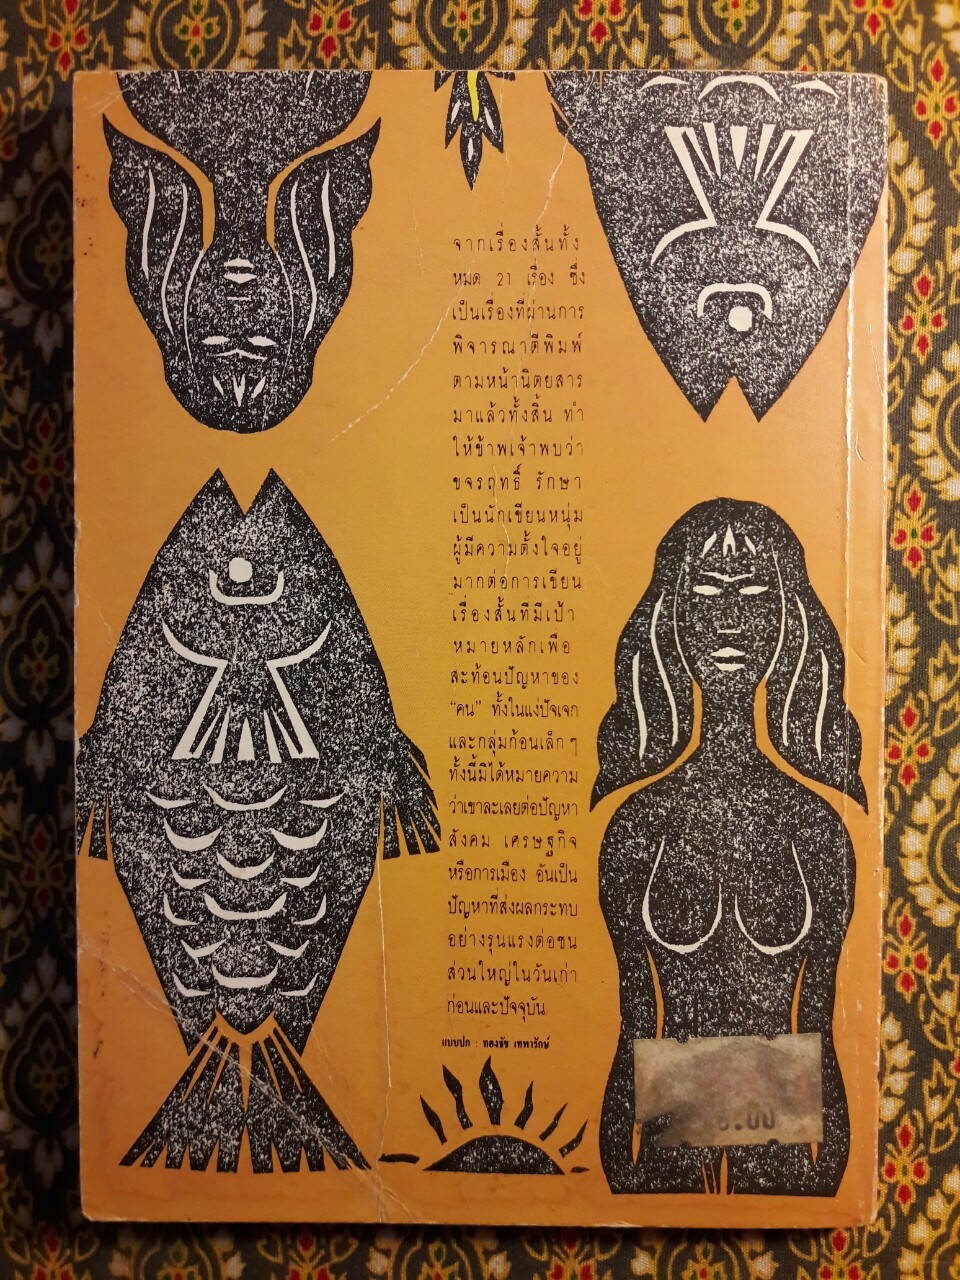 จากเรื่องสั้นทั้ง
หมด 21 เรื่อง ซึ่ง
เป็นเรื่องที่ผ่านการ
พิจารณาตีพิมพ์
ตามหน้านิตยสาร
มาแล้วทั้งสิ้น ทำ
ให้ข้าพเจ้าพบว่า
ขจรฤทธิ์ รักษา
เป็นนักเขียนหนุ่ม
ผู้มีความตั้งใจอยู่
มากต่อการเขียน
เรื่องสั้นที่มีเป้า
หมายหลักเพื่อ
สะท้อนปัญหาของ
“คน” ทั้งในแง่ปัจเจก
และกลุ่มก้อนเล็กๆ
ทั้งนี้มิได้หมายความ
ว่าเขาละเลยต่อปัญหา
สังคม เศรษฐกิจ
หรือการเมือง อันเป็น
ปัญหาที่ส่งผลกระทบ
อย่างรุนแรงต่อชน
ส่วนใหญ่ในวันเก่า
ก่อนและปัจจุบัน
แบบปก : ทองธัช เทพารักษ์